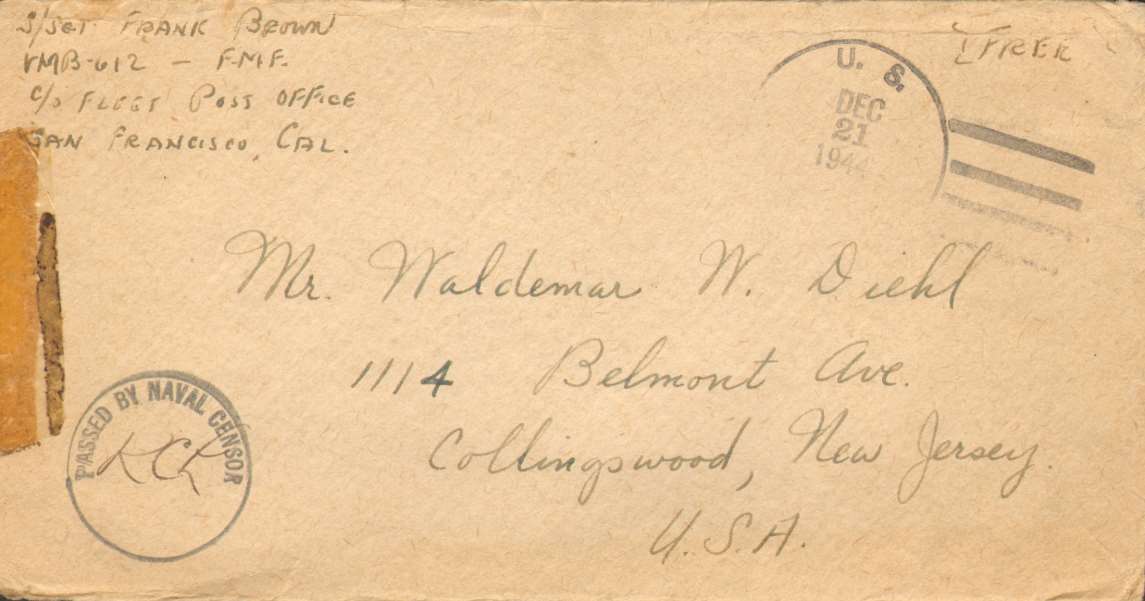 S/SGT FRANK BROWN
VMB-612 — F.M.F.
C/O FLEET POST OFFICE
SAN FRANCISCO, CAL.
FREE
U. S.
DEC
21
1944
Mr. Waldemar W. Diehl
1114 Belmont Ave.
Collingswood, New Jersey.
U.S.A.
PASSED BY NAVAL CENSOR